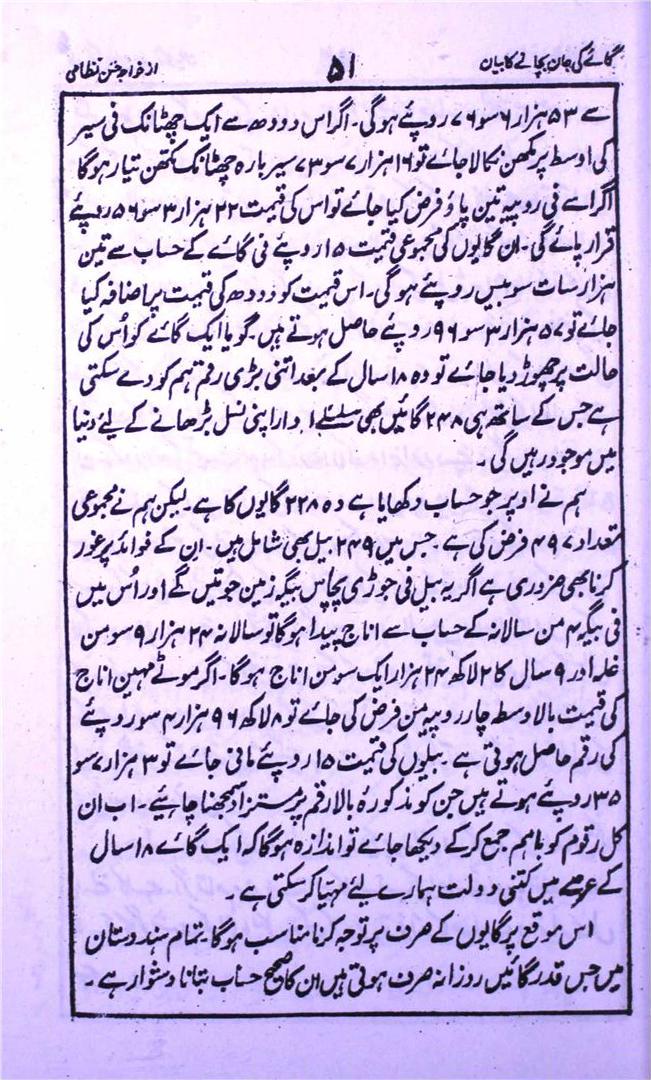 گائے کی جان بچانے کا بیان
۵۱
از خواجہ حسن نظامی
سے ۵۳ ہزار ۶ سو ۷۶ روپئے ہوگی۔ اگر اس دودھ سے ایک چھٹانک فی سیر
کی اوسط پر مکھن نکالا جائے تو ۱۶ ہزار ۷ سو ۷۳ سیر بارہ چھٹانک مکھن تیار ہوگا
اگر اسے فی روپیہ تین پاؤ فرض کیا جائے تو اس کی قیمت ۲۲ ہزار ۳ سو ۵۶ روپئے
قرار پائے گی۔ ان گایوں کی مجموعی قیمت ۱۵ روپئے فی گائے کے حساب سے تین
ہزار سات سو بیس روپئے ہوگی۔ اس قیمت کو دودھ کی قیمت پر اضافہ کیا
جائے تو ۵۷ ہزار ۳ سو ۹۶ روپئے حاصل ہوتے ہیں۔ گویا ایک گائے کو اُس کی
حالت پر چھوڑ دیا جائے تو وہ ۱۸ سال کے بعد اتنی بڑی رقم ہم کو دے سکتی
ہے جس کے ساتھ ہی ۲۴۸ گائیں بھی سلسلے وار اپنی نسل بڑھانے کے لیئے دنیا
میں موجود رہیں گی۔
ہم نے اوپر جو حساب دکھایا ہے وہ ۲۲۸ گایوں کا ہے۔ لیکن ہم نے مجموعی
تعداد ۴۹۷ فرض کی ہے۔ جس میں ۲۴۹ بیل بھی شامل ہیں۔ ان کے فوائد پر غور
کرنا بھی ضروری ہے اگر یہ بیل فی جوڑی پچاس بیگہ زمین جوتیں گے اور اُس میں
فی بیگہ ۴ من سالانہ کے حساب سے اناج پیدا ہوگا تو سالانہ ۲۴ ہزار ۹ سو من
غلہ اور ۹ سال کا ۲ لاکھ ۲۴ ہزار ایک سو من اناج ہوگا۔ اگر موٹے مہین اناج
کی قیمت بالاوسط چار روپیہ من فرض کی جائے تو ۸ لاکھ ۹۶ ہزار ۴ سو روپئے
کی رقم حاصل ہوتی ہے۔ بیلوں کی قیمت ۱۵ روپئے مانی جائے تو ۳ ہزار ۷ سو
۳۵ روپئے ہوتے ہیں جن کو مذکورہ بالا رقم پر مستزاد سمجھنا چاہیے۔ اب ان
کل رقوم کو باہم جمع کر کے دیکھا جائے تو اندازہ ہوگا کہ ایک گائے ۱۸ سال
کے عرصے میں کتنی دولت ہمارے لئے مہیا کر سکتی ہے۔
اس موقع پر گایوں کے صرف پر توجہ کرنا مناسب ہوگا۔ تمام ہندوستان
میں جس قدر گائیں روزانہ صرف ہوتی ہیں ان کا صحیح حساب بتانا دشوار ہے۔